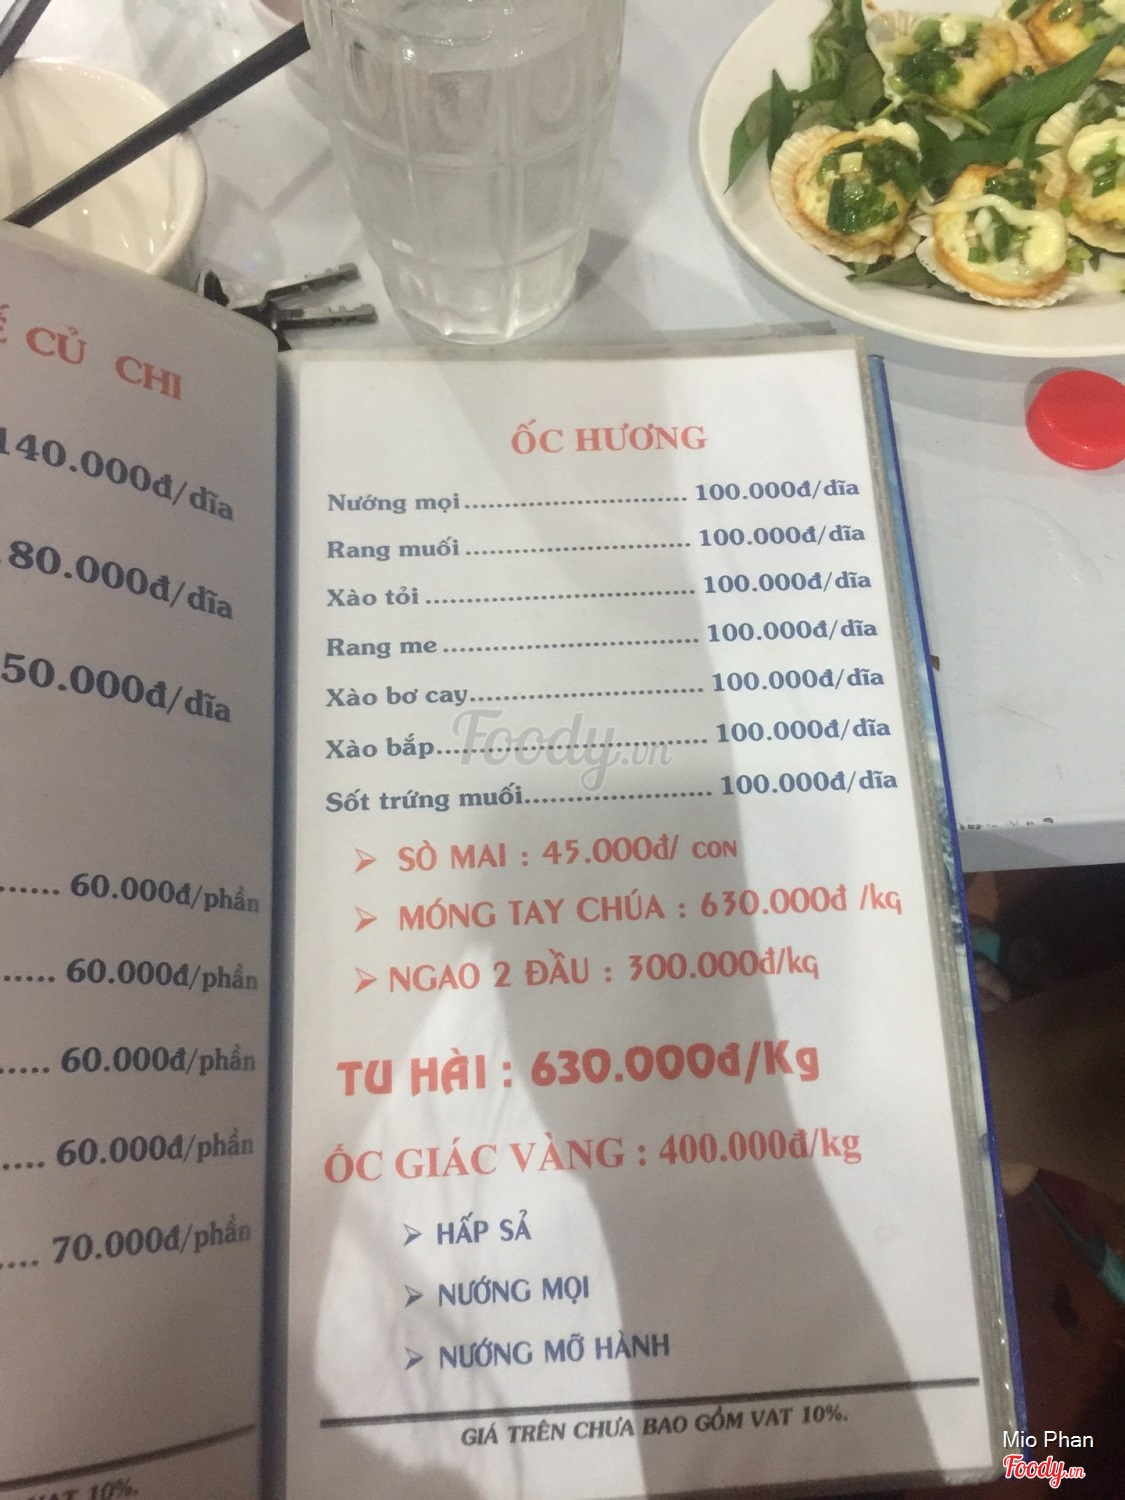 CỦ CHI
140.000đ/dĩa
80.000đ/dĩa
50.000đ/dĩa
...... 60.000đ/phần
..... 60.000đ/phần
..... 60.000đ/phần
.... 60.000đ/phần
.... 70.000đ/phần
VAT 10%.
ỐC HƯƠNG
Nướng mọi........................... 100.000đ/dĩa
Rang muối ........................... 100.000đ/dĩa
Xào tỏi ................................ 100.000đ/dĩa
Rang me ............................... 100.000đ/dĩa
Xào bơ cay............................ 100.000đ/dĩa
Xào bắp................................ 100.000đ/dĩa
Sốt trứng muối....................... 100.000đ/dĩa
➢ SÒ MAI : 45.000đ/ CON
➢ MÓNG TAY CHÚA : 630.000đ /kg
➢ NGAO 2 ĐẦU : 300.000đ/kg
TU HÀI : 630.000đ/Kg
ỐC GIÁC VÀNG : 400.000đ/kg
➢ HẤP SẢ
➢ NƯỚNG MỌI
➢ NƯỚNG MỠ HÀNH
GIÁ TRÊN CHƯA BAO GỒM VAT 10%.
Foody.vn
Mio Phan
Foody.vn